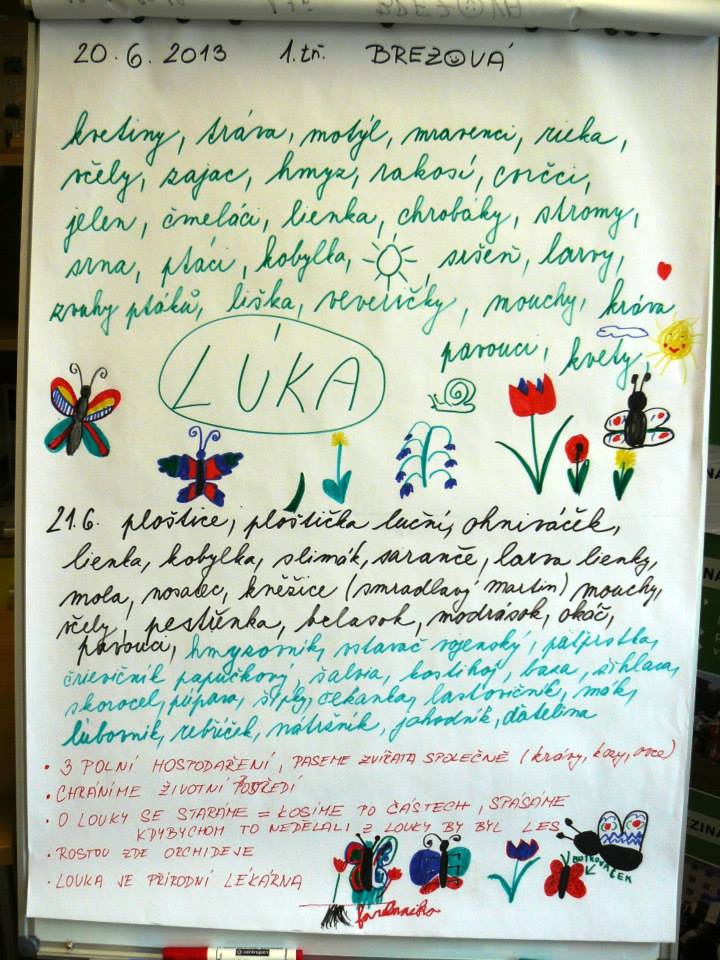 20.6.2013 1.tř. BREZOVÁ
kvetiny, tráva, motýl, mravenci, rieka,
včely, zajac, hmyz, rakosí, cvrčci,
jelen, čmeláci, lienka, chrobáky, stromy,
srna, ptáci, kobylka, , sršeň, larvy,
zvuhy ptáků, liška, veveričky, mouchy, kráva
pavouci, kvety,
LÚKA
21.6. ploštice, ploštička luční, ohniváček,
lienka, kobylka, slimák, saranče, larva lienky,
mola, nosatec, kněžice (smradlavý martin) mouchy,
včely, pestřenka, belasok, modrások, okáč,
pavouci, hmyzovník, vstavač vojenský, pätprstka,
črievičník papučkový, šalvia, kostihoj, baza, žihlava,
skorocel, púpava, šípky, čekanka, lastovičník, mák,
ľubovník, rebříček, nátržník, jahodník, ďatelina
• 3 POLNÍ HOSPODAŘENÍ, PASEME ZVÍŘATA SPOLEČNĚ (krávy, kozy, ovce)
• CHRÁNIME ŽIVOTNÍ PROSTŘEDÍ
• O LOUKY SE STARÁME = KOSÍME PO ČÁSTECH, SPÁSÁME
KDYBYCHOM TO NEDĚLALI Z LOUKY BY BYL LES
• ROSTOU ZDE ORCHIDEJE
• LOUKA JE PŘÍRODNÍ LÉKÁRNA